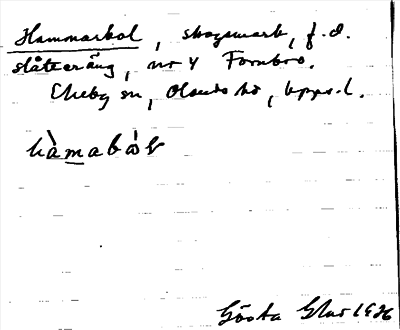 Hammarkol, skogsmark, f.d.
slåtteräng, nr 4 Fornbro.
Ekeby sn, Olands hd, Upps.l.
hàmabàk
Gösta 1926